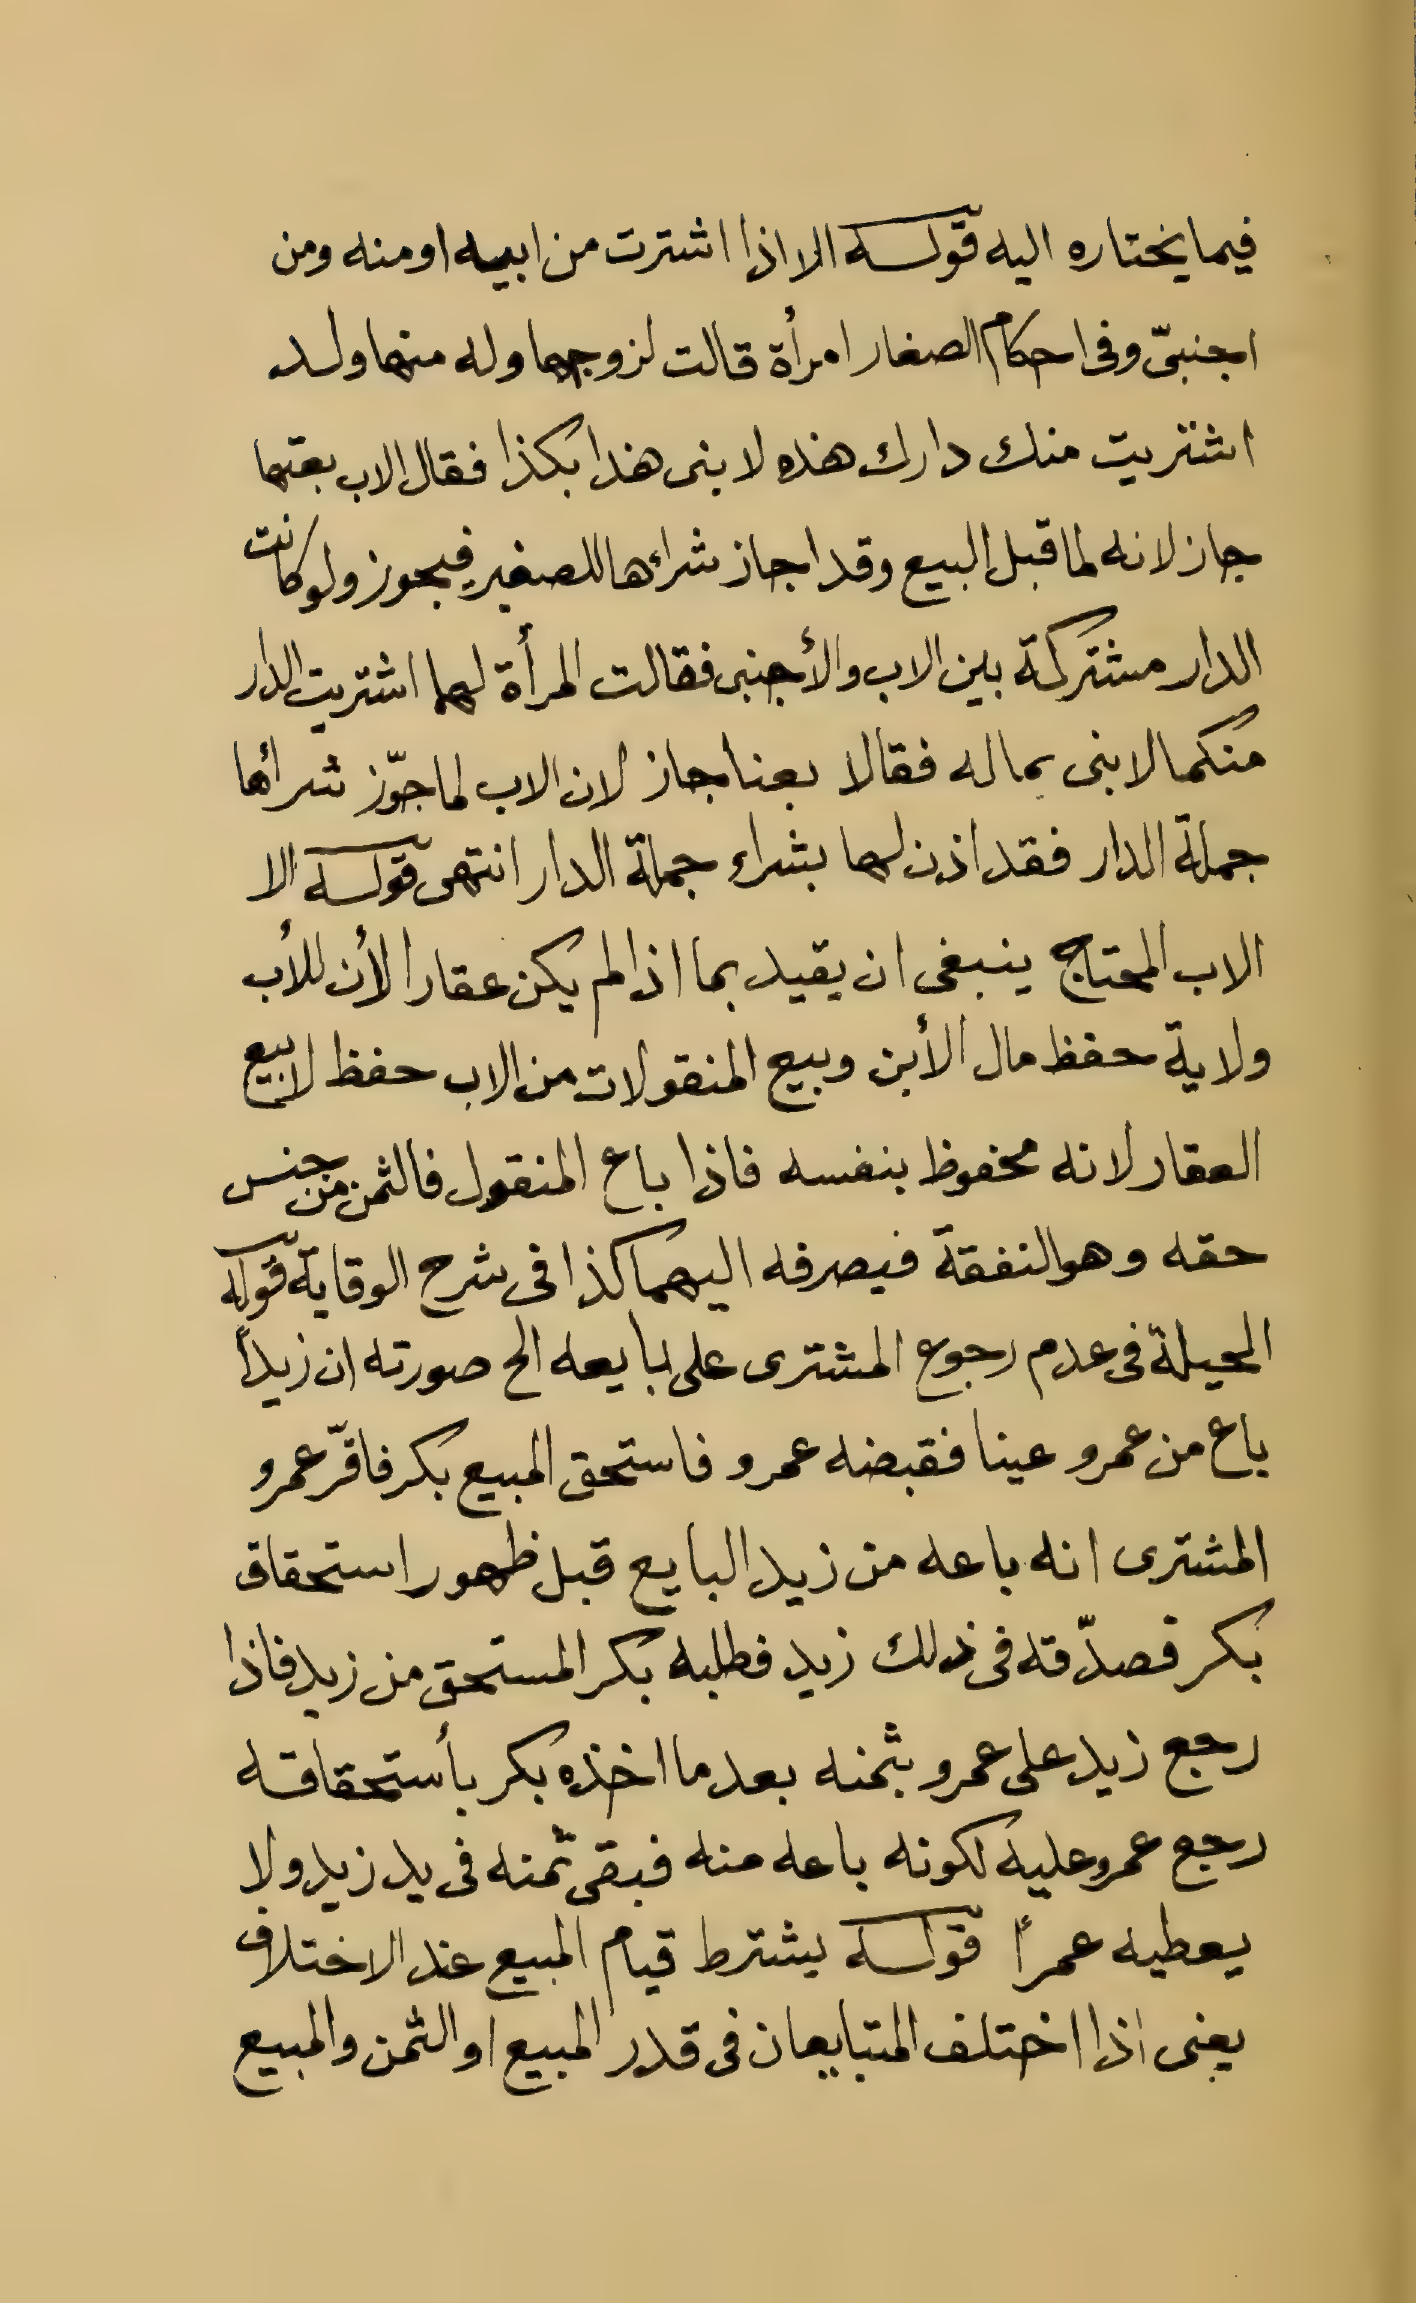 فيما يختاره اليه قوله الا اذا اشترت من ابيه او منه ومن
اجنبىّ وفى احكام الصغار امرأة قالت لزوجها وله منها ولد
اشتريت منك دارك هذه لابنى هذا بكذا فقال الاب بعتها
جاز لانه لما قبل البيع وقد اجاز شراءها للصغير فيجوز ولو كانت
الدار مشتركة بين الاب والأجنبى فقالت المرأة لهما اشتريت الدار
منكما لابنى بماله فقالا بعنا جاز لان الاب لما جوّز شرائها
جملة الدار فقد اذن لها بشراء جملة الدار انتهى قوله الا
الاب المحتاج ينبغى ان يقيد بما اذا لم يكن عقارا لأن للأب
ولاية حفظ مال الأبن وبيع المنقولات من الاب حفظ لا بيع
العقار لانه محفوظ بنفسه فاذا باع المنقول فالثمن من جنس
حقه وهو النفقة فيصرفه اليهما كذا فى شرح الوقاية قوله
الحيلة فى عدم رجوع المشترى على بايعه الخ صورته ان زيداً
باع من عمرو عينا فقبضه عمرو فاستحق المبيع بكر فاقرّ عمرو
المشترى انه باعه من زيد البايع قبل ظهور استحقاق
بكر فصدّقه فى ذلك زيد فطلبه بكر المستحق من زيد فاذا
رجع زيد على عمرو بثمنه بعد ما اخذه بكر بأستحقاقه
رجع عمرو عليه لكونه باعه منه فبقى ثمنه فى يد زيد ولا
يعطيه عمراً قوله يشترط قيام المبيع عند الاختلاف
يعنى اذا اختلف المتبايعان فى قدر المبيع او الثمن والمبيع